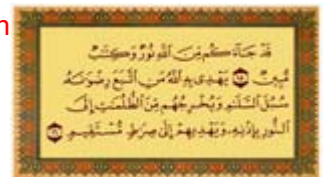 n
قَدْ جَآءَكُم مِّنَ ٱللَّهِ نُورٌ وَكِتَٰبٌ
مُّبِينٌ ١٥ يَهْدِى بِهِ ٱللَّهُ مَنِ ٱتَّبَعَ رِضْوَٰنَهُۥ
سُبُلَ ٱلسَّلَٰمِ وَيُخْرِجُهُم مِّنَ ٱلظُّلُمَٰتِ إِلَى
ٱلنُّورِ بِإِذْنِهِۦ وَيَهْدِيهِمْ إِلَىٰ صِرَٰطٍ مُّسْتَقِيمٍ ١٦